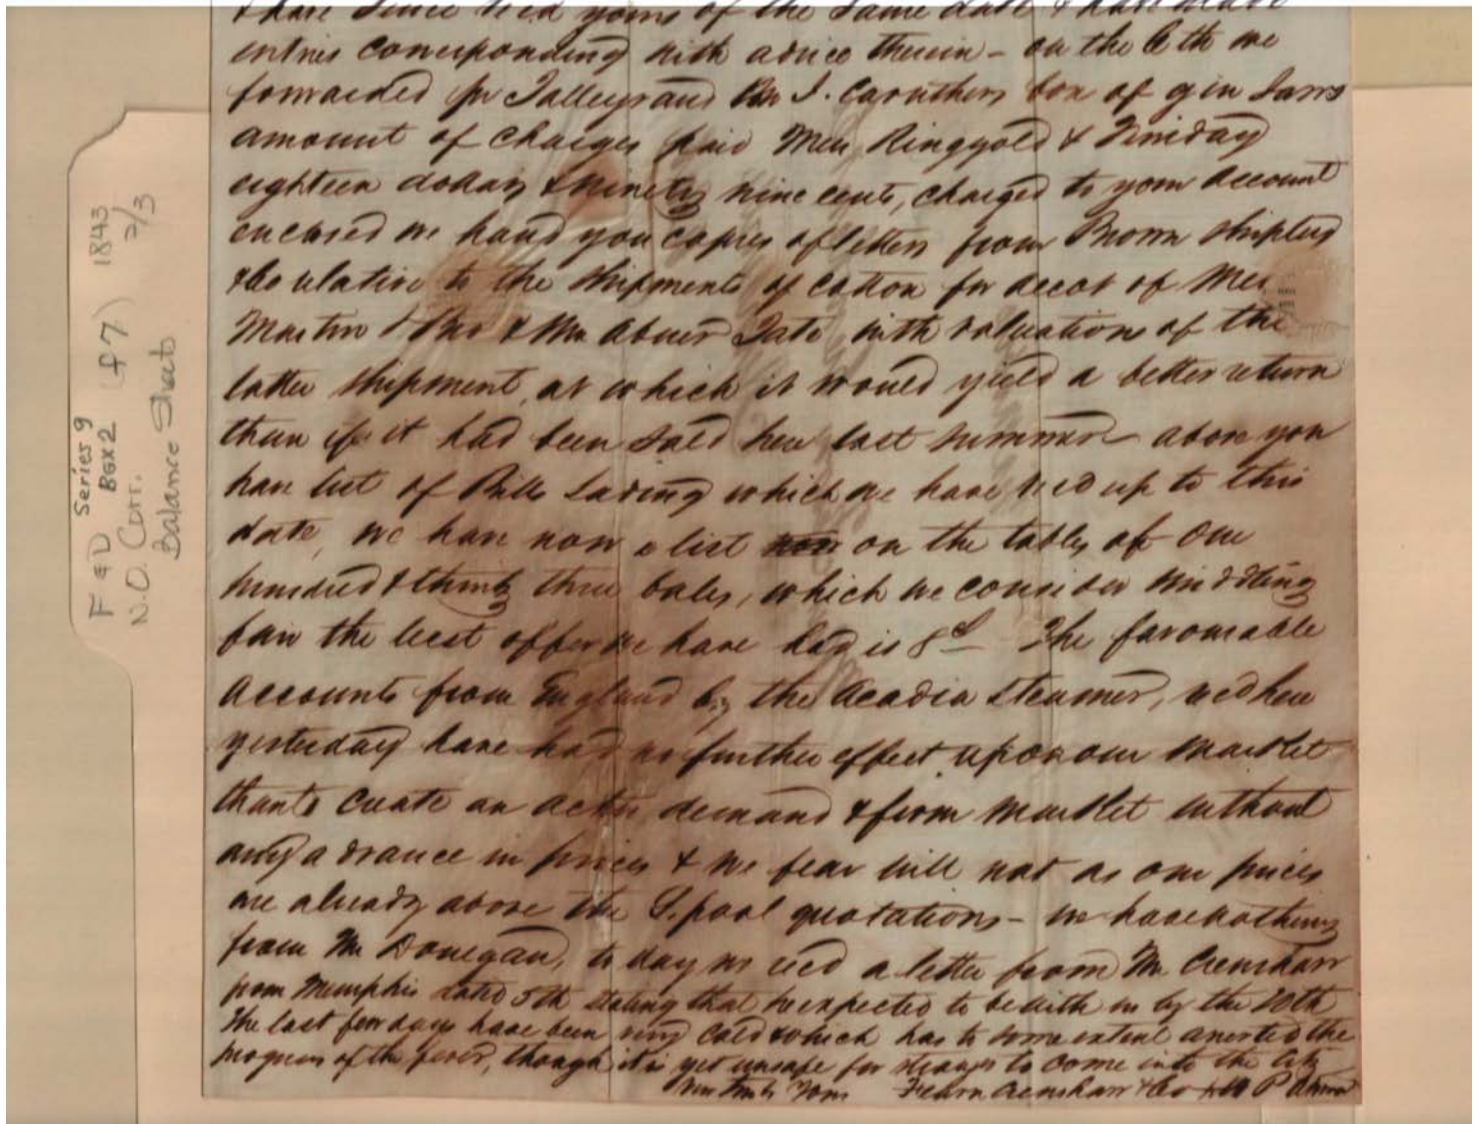 & have since rec'd yours of the same date & have made
entries corresponding with advice therein - on the 6th we
forwarded pr Talleyrand Mr J. Caruthers box of gin Saws
amount of charges paid Mess Ringgold & Finiday
eighteen dollars & ninety nine cents, charged to your account
encased we hand you copies of letters from Brown Shipley
& Co relative to the shipments of cotton for accot of Mess
Martin & Bro & Mr Abner Tate, with valuation of the
latter shipment, at which it would yield a better return
than if it had been sold here last summer above you
have list of Bills Lading which we have rec'd up to this
date, we have now a list on the tables of One
hundred & thirty three bales, which we consider middling
fair the best offer we have had is 8 The favourable
accounts from England by the Acadia steamer, rec'd here
yesterday have had no further effect upon our market
than to create an active demand & firm market without
any advance in prices & we fear will not as our prices
are already above the L.pool quotations - we have nothing
from Mr Donegan, to day we recd a letter from Mr Crenshaw
from Memphis dated 5th stating that he expected to be with us by the 20th
The last few days have been very cold & which has to some extent arrested the
progress of the fever, though it is yet unsafe for strangers to come into the City
Very Truly Yours Fearn Crenshaw & Co P
F & D Series 9
Box 2 (f 7) 1843
N.O. Corr. 2/3
Balance Sheet